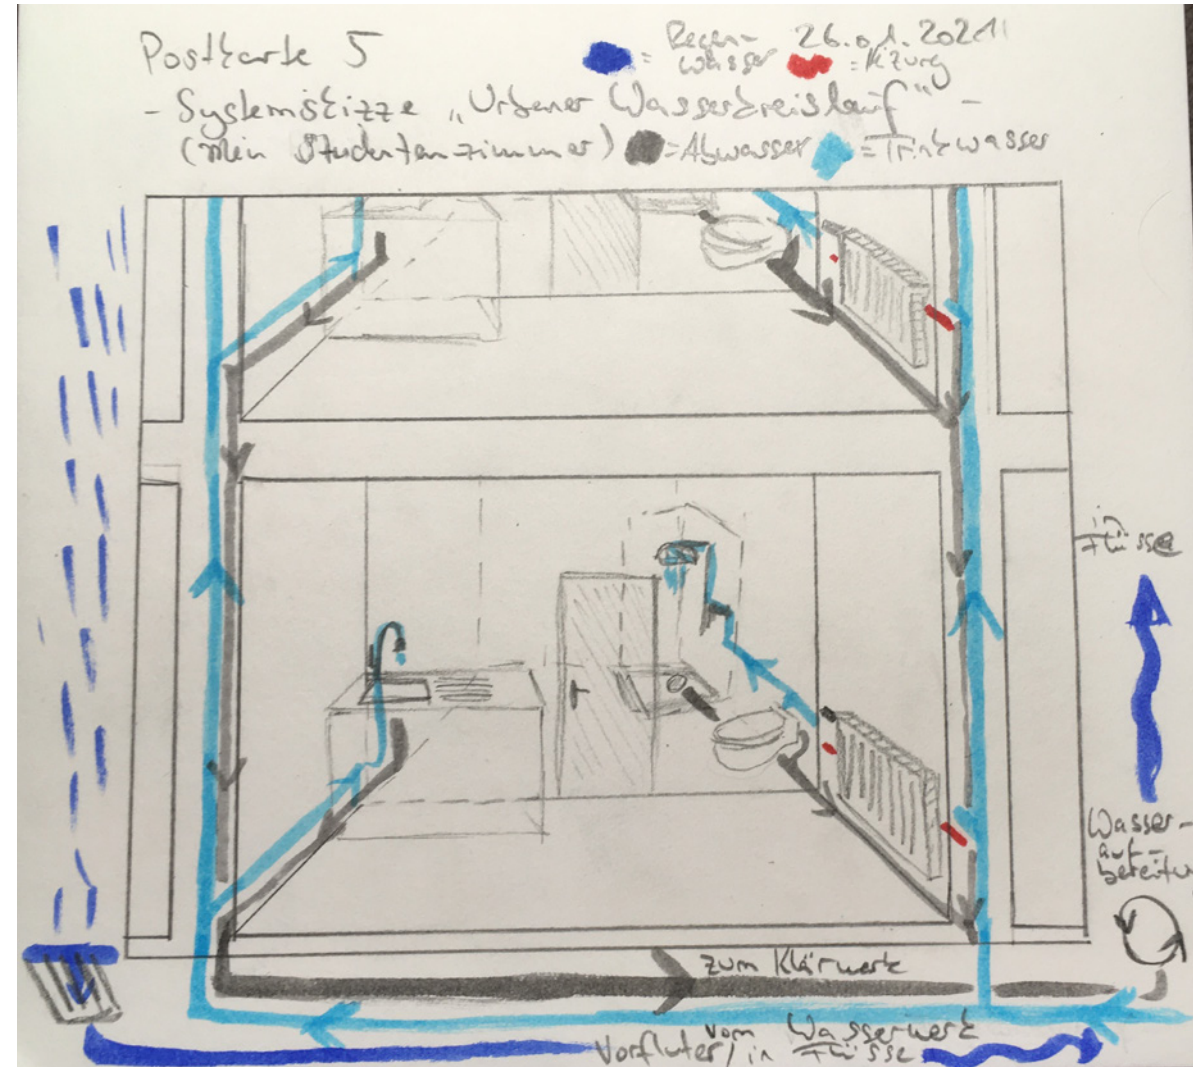 Postkarte 5
26.01.2021
= Regen-
wasser
= Hizung
- Systemskizze „Urbaner Wasserkreislauf" -
(mein Studentenzimmer)
= Abwasser
= Trinkwasser
in
Flüsse
Wasser-
auf-
bereitu
zum Klärwerk
vom Wasserwerk
Vorfluter/in Flüsse